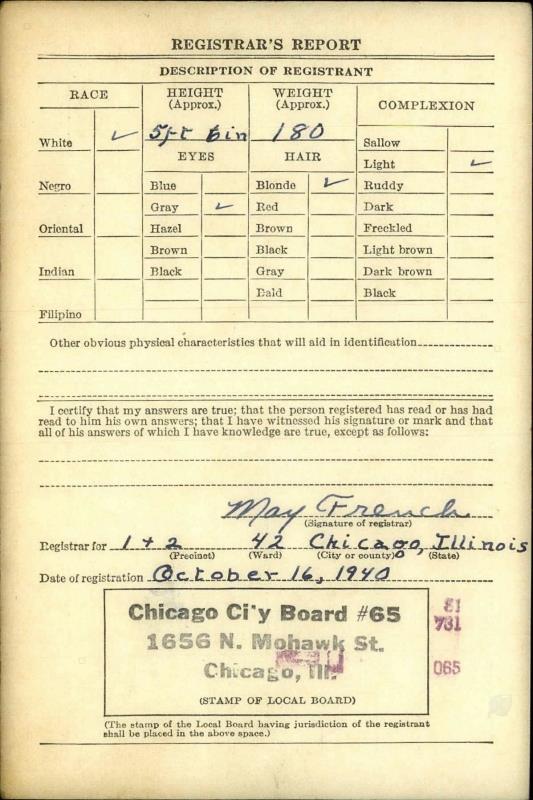 REGISTRAR'S REPORT
DESCRIPTION OF REGISTRANT
RACE HEIGHT (Approx.) WEIGHT (Approx.) COMPLEXION
White ✓ 5ft 6in 180 Sallow
EYES HAIR Light ✓
Negro Blue Blonde ✓ Ruddy
Gray ✓ Red Dark
Oriental Hazel Brown Freckled
Brown Black Light brown
Indian Black Gray Dark brown
Bald Black
Filipino
Other obvious physical characteristics that will aid in identification
I certify that my answers are true; that the person registered has read or has had
read to him his own answers; that I have witnessed his signature or mark and that
all of his answers of which I have knowledge are true, except as follows:
May French
(Signature of registrar)
Registrar for 1 + 2 42 Chicago, Illinois
(Precinct) (Ward) (City or county) (State)
Date of registration October 16, 1940
Chicago Ci'y Board #65
1656 N. Mohawk St.
Chicago, Ill.
(STAMP OF LOCAL BOARD)
31
731
065
(The stamp of the Local Board having jurisdiction of the registrant
shall be placed in the above space.)